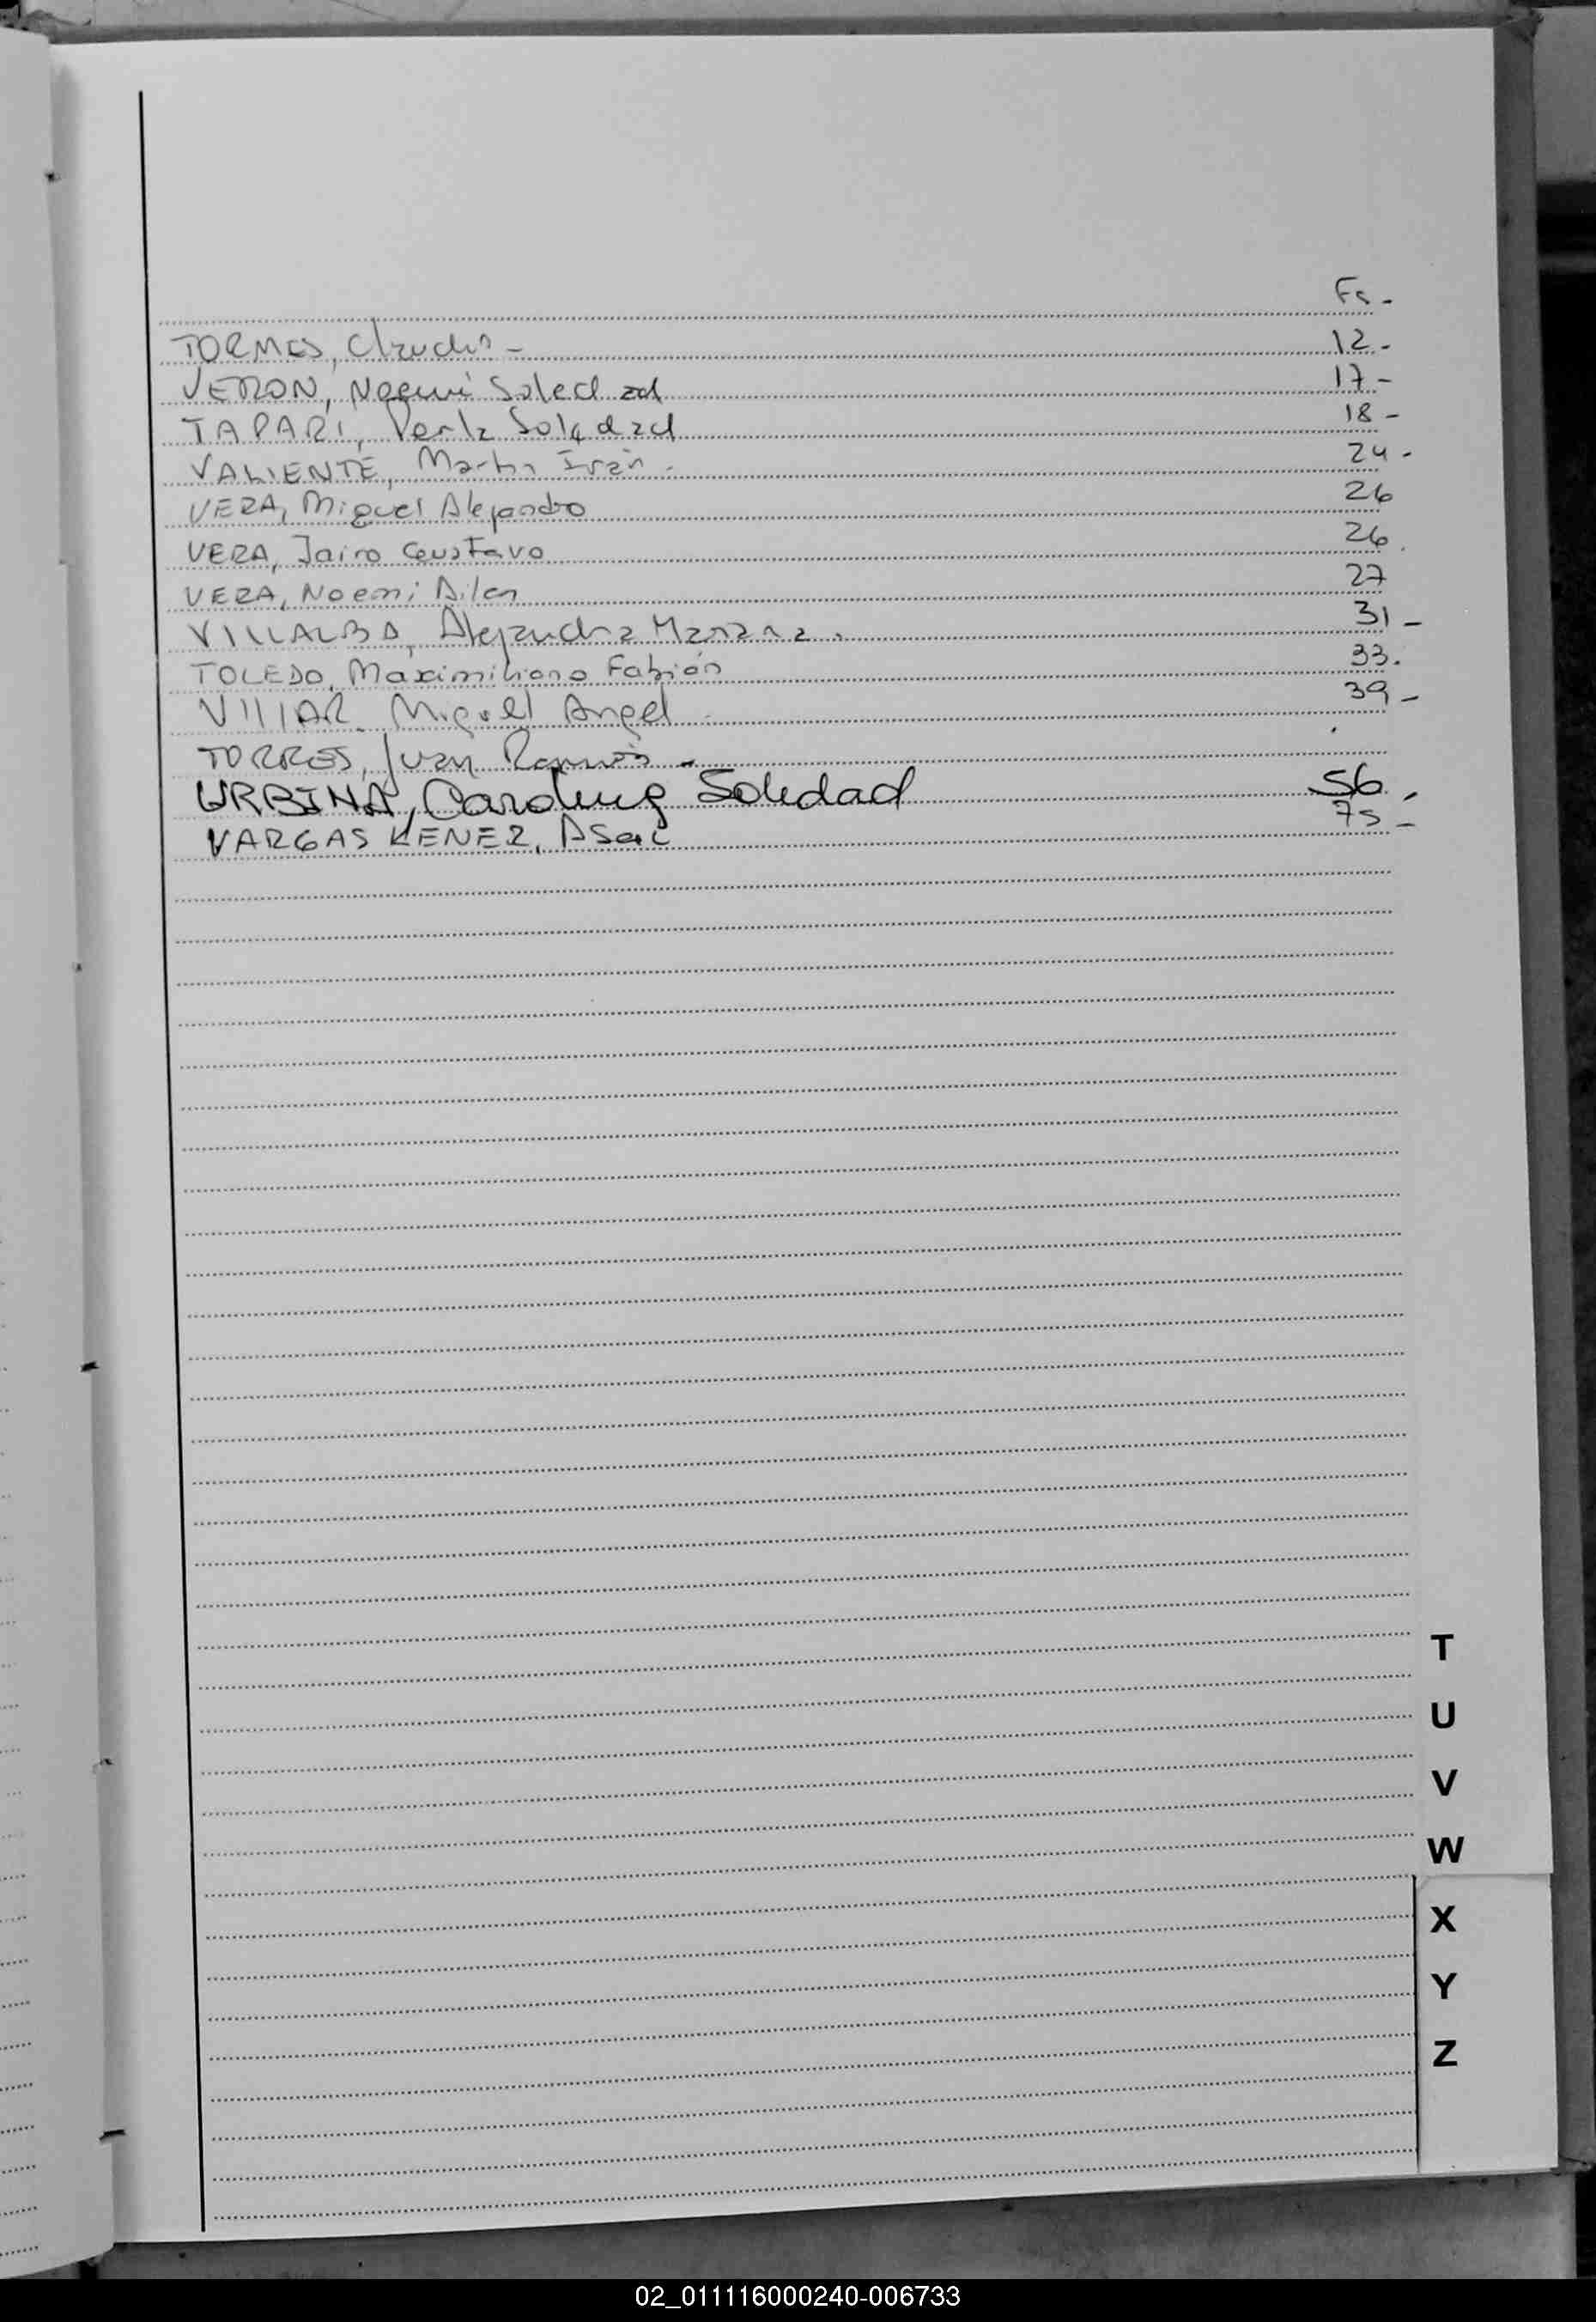 Fs -
TORMES, Claudio - 12 -
VERON, Noemi Soledad 17 -
TAPARI, Perla Soledad 18 -
VALIENTE, Martin Ivan - 24 -
VERA, Miguel Alejandro 26
VERA, Jairo Gustavo 26.
VERA, Noemi Ailen 27
VILLALBA, Alejandra Mariana . 31 -
TOLEDO, Maximiliano Fabián 33.
VIllAR Miguel Angel - 39 -
TORRES, Juan Ramón -
URBINA, Carolina Soledad 56 -
VARGAS KENEZ, 75 -
T
U
V
W
X
Y
Z
02_011116000240-006733